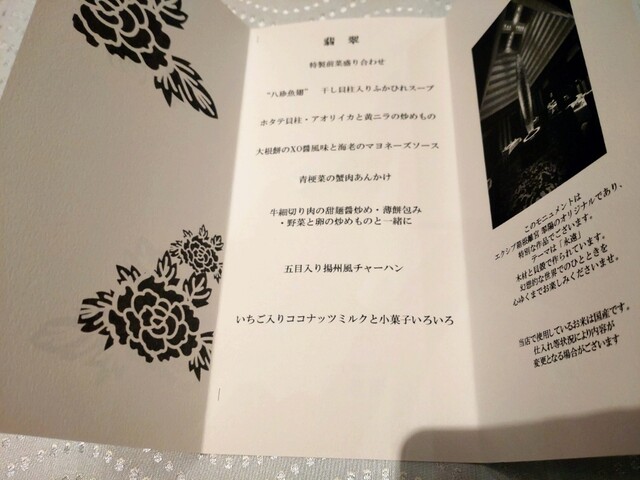 翡翠
特製前菜盛り合わせ
“八珍魚翅”　干し貝柱入りふかひれスープ
ホタテ貝柱・アオリイカと黄ニラの炒めもの
大根餅のXO醬風味と海老のマヨネーズソース
青梗菜の蟹肉あんかけ
牛細切り肉の甜麺醬炒め・薄餅包み
・野菜と卵の炒めものと一緒に
五目入り揚州風チャーハン
いちご入りココナッツミルクと小菓子いろいろ
このモニュメントは
エクシブ箱根離宮 翠陽のオリジナルであり、
特別な作品でございます。
テーマは「永遠」
木材と貝殻で作られています。
幻想的な世界でのひとときを
心ゆくまでお楽しみくださいませ。
当店で使用しているお米は国産です。
仕入れ等状況により内容が
変更となる場合がございます